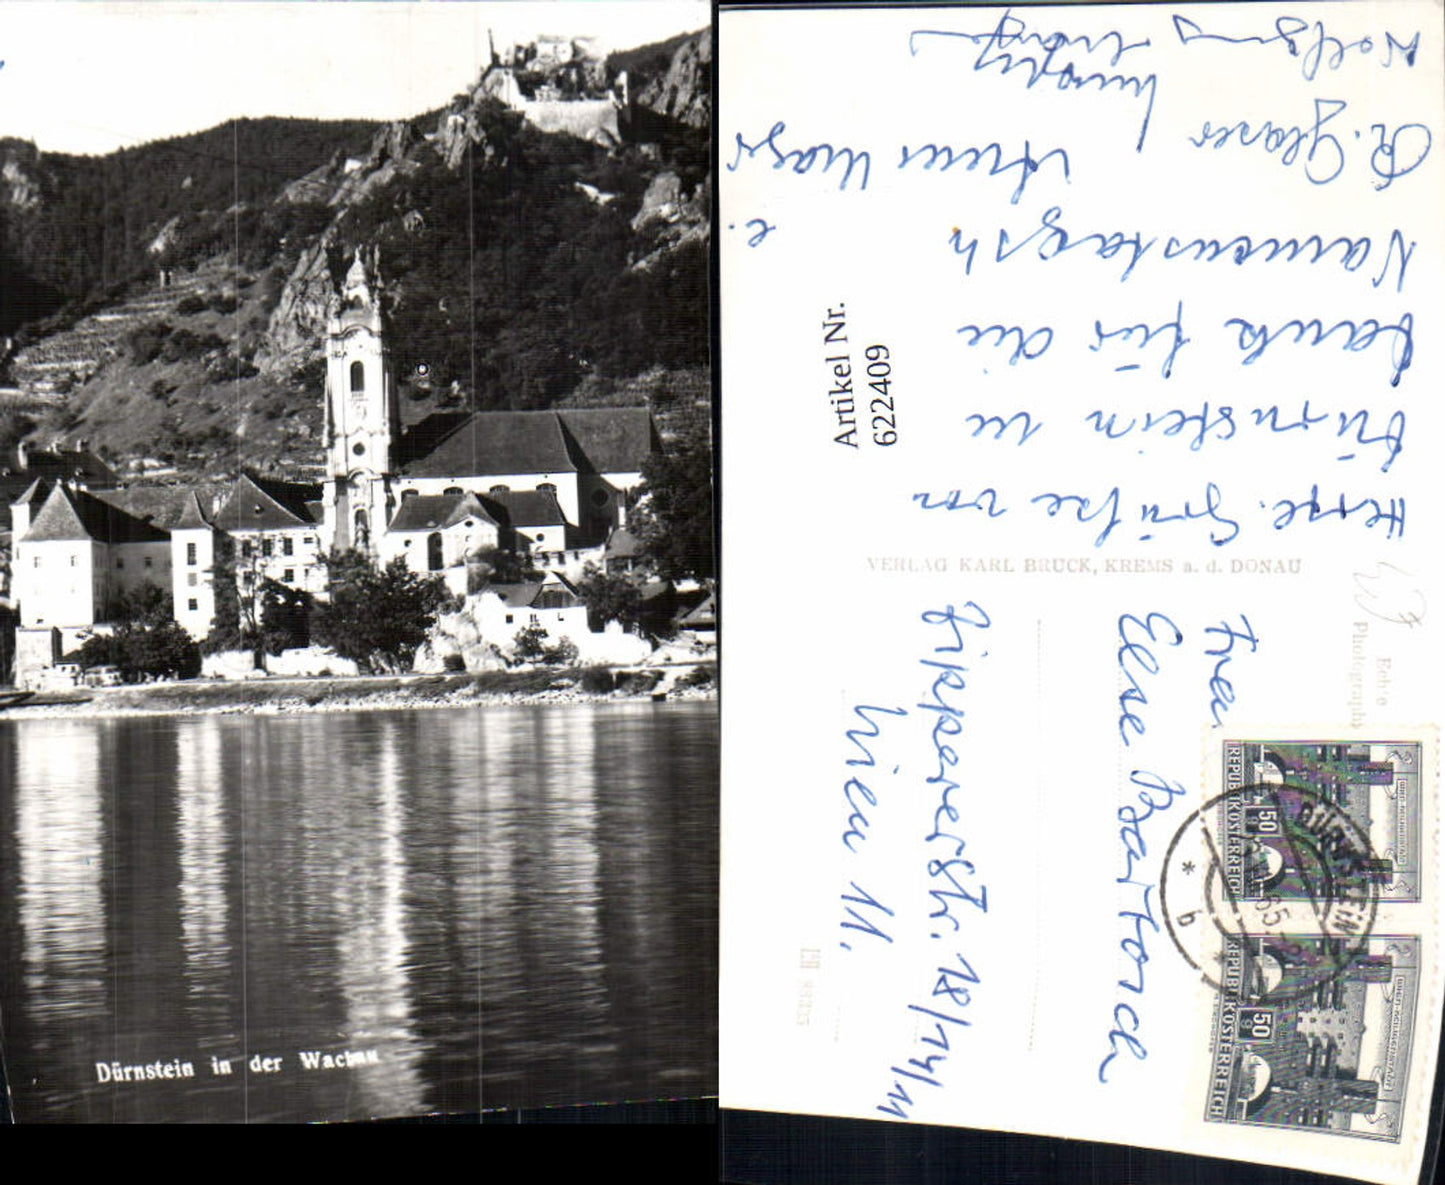 Dürnstein in der Wachau
Artikel Nr.
622409
Herzl. Grüße von
Dürnstein u.
Dank für die
Namenstagsw
R. Glaser
Wolfgang
VERLAG KARL BRUCK, KREMS a. d. DONAU
Echte
Photographie
Frau
Else Bartosch
Gippererstr. 18/14/11
Wien 11.
REPUBLIK ÖSTERREICH
50 g
DÜRNSTEIN
65-
* b
REPUBLIK ÖSTERREICH
50 g